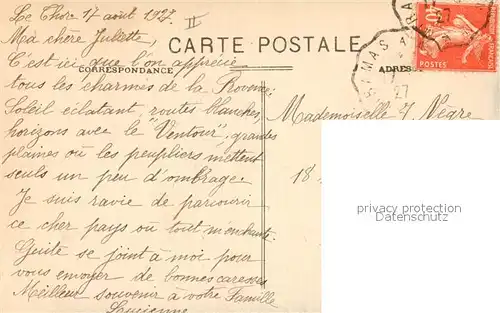 Le Thor 17 août 1927. II
Ma chère Juliette,
CARTE POSTALE
C'est ici que l'on apprécie
CORRESPONDANCE
ADRES
tous les charmes de la Provence:
Soleil éclatant, routes blanches,
horizons avec le "Ventour", grandes
plaines où les peupliers mettent
seuls un peu d'ombrage.
Je suis ravie de parcourir
ce cher pays où tout m'enchante.
Guite se joint à moi pour
vous envoyer de bonnes caresses
Meilleur souvenir à votre Famille
Lucienne
Mademoiselle J Nègre
18
POSTES
10
MAS
27
privacy protection
Datenschutz